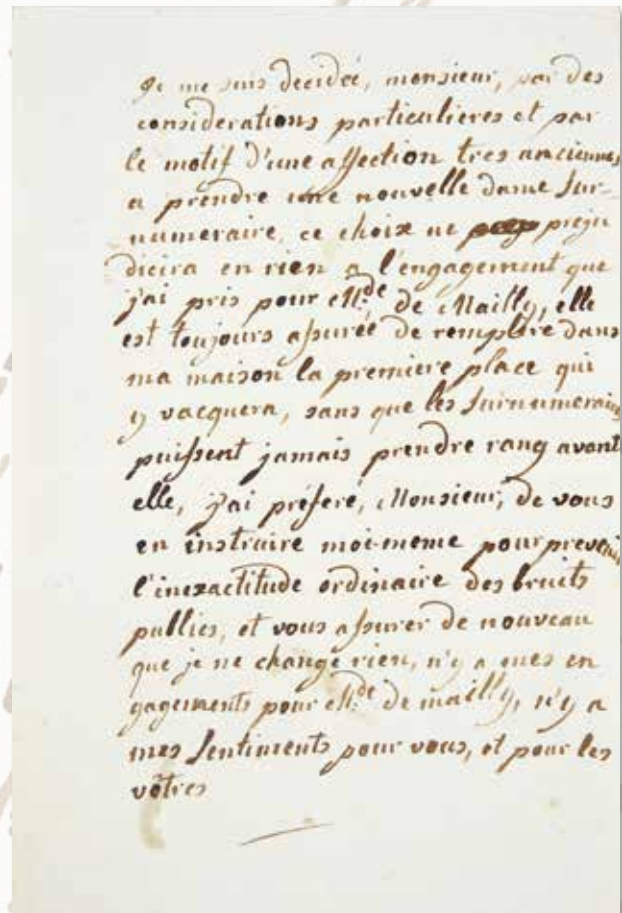 Je me suis decidée, monsieur, par des
considerations particulieres et par
le motif d'une affection tres anciennes
a prendre une nouvelle dame sur-
numeraire, ce choix ne preju
dicira en rien a l'engagement que
j'ai pris pour M.de de Mailly, elle
est toujours assurée de remplire dans
ma maison la premiere place qui
y vacquera, sans que les surnumeraires
puissent jamais prendre rang avant
elle, j'ai préferé, Monsieur, de vous
en instruire moi-meme pour prevenir
l'inexactitude ordinaire des bruits
publics, et vous assurer de nouveau
que je ne change rien, n'y a mes en
gagements pour M.de de mailly, n'y a
mes sentiments pour vous, et pour les
vôtres